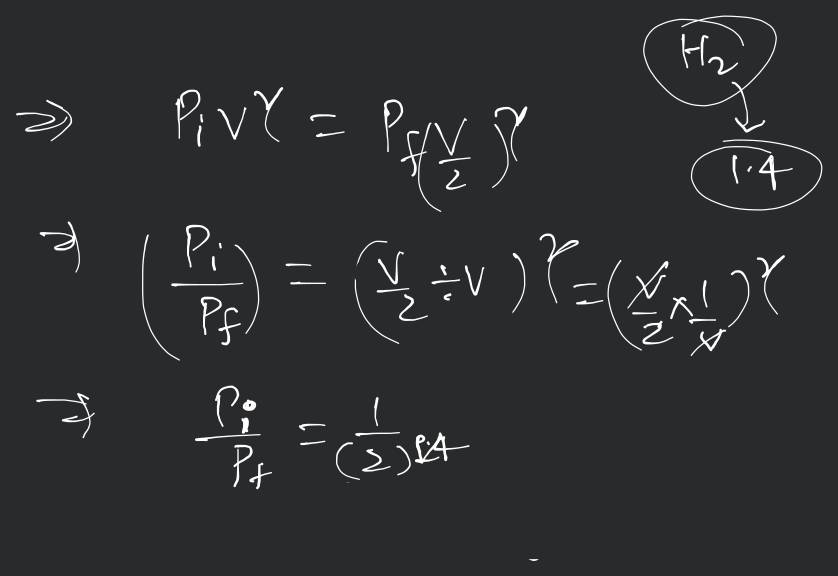 H₂
1.4
⇒ PᵢV^γ = P_f(V/2)^γ
⇒ (Pᵢ/P_f) = (V/2 ÷ V)^γ = (V/2 × 1/V)^γ
⇒ Pᵢ/P_f = 1/(2)^1.4